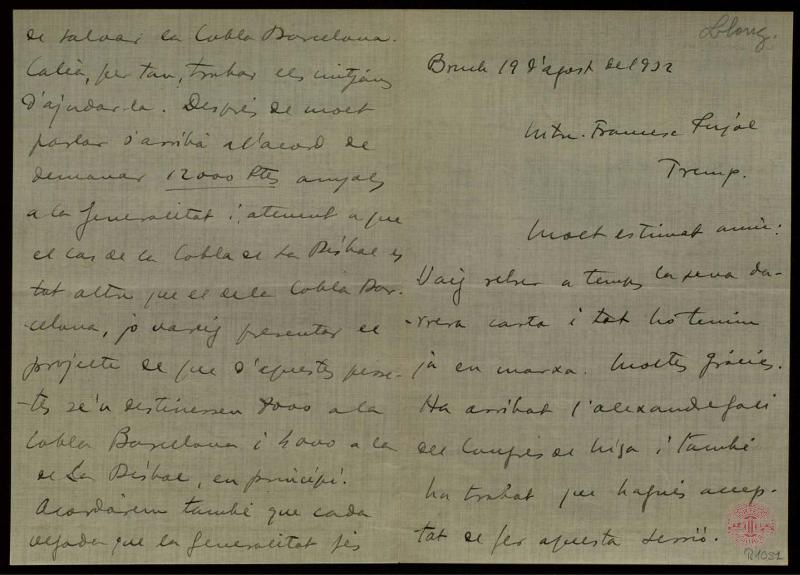 Llong.
Bruch 19 d'agost del 1932
Mtre. Francesc Pujol
Tremp.
Molt estimat amic:
Vaig rebre a temps la seva da-
-rrera carta i tot ho tenim
ja en marxa. Moltes gràcies.
Ha arribat l'Alexandre Galí
del Congrés de Niça i també
ha trobat que hagués accep-
tat de fer aquesta sessió.
R1031
de salvar la Cobla Barcelona.
Calia, per tan, trobar els mitjans
d'ajudar-la. Després de molt
parlar s'arribà a l'acord de
demanar 12000 Ptes anyals
a la Generalitat i, atenent a que
el cas de la Cobla de La Bisbal es
tot altre que el de la Cobla Bar-
-celona, jo vareig presentar el
projecte de que d'aquestes pesse-
-tes se'n destinessen 8000 a la
Cobla Barcelona i 4000 a la
de La Bisbal, en principi.
Acordàrem també que cada
vegada que la Generalitat fés